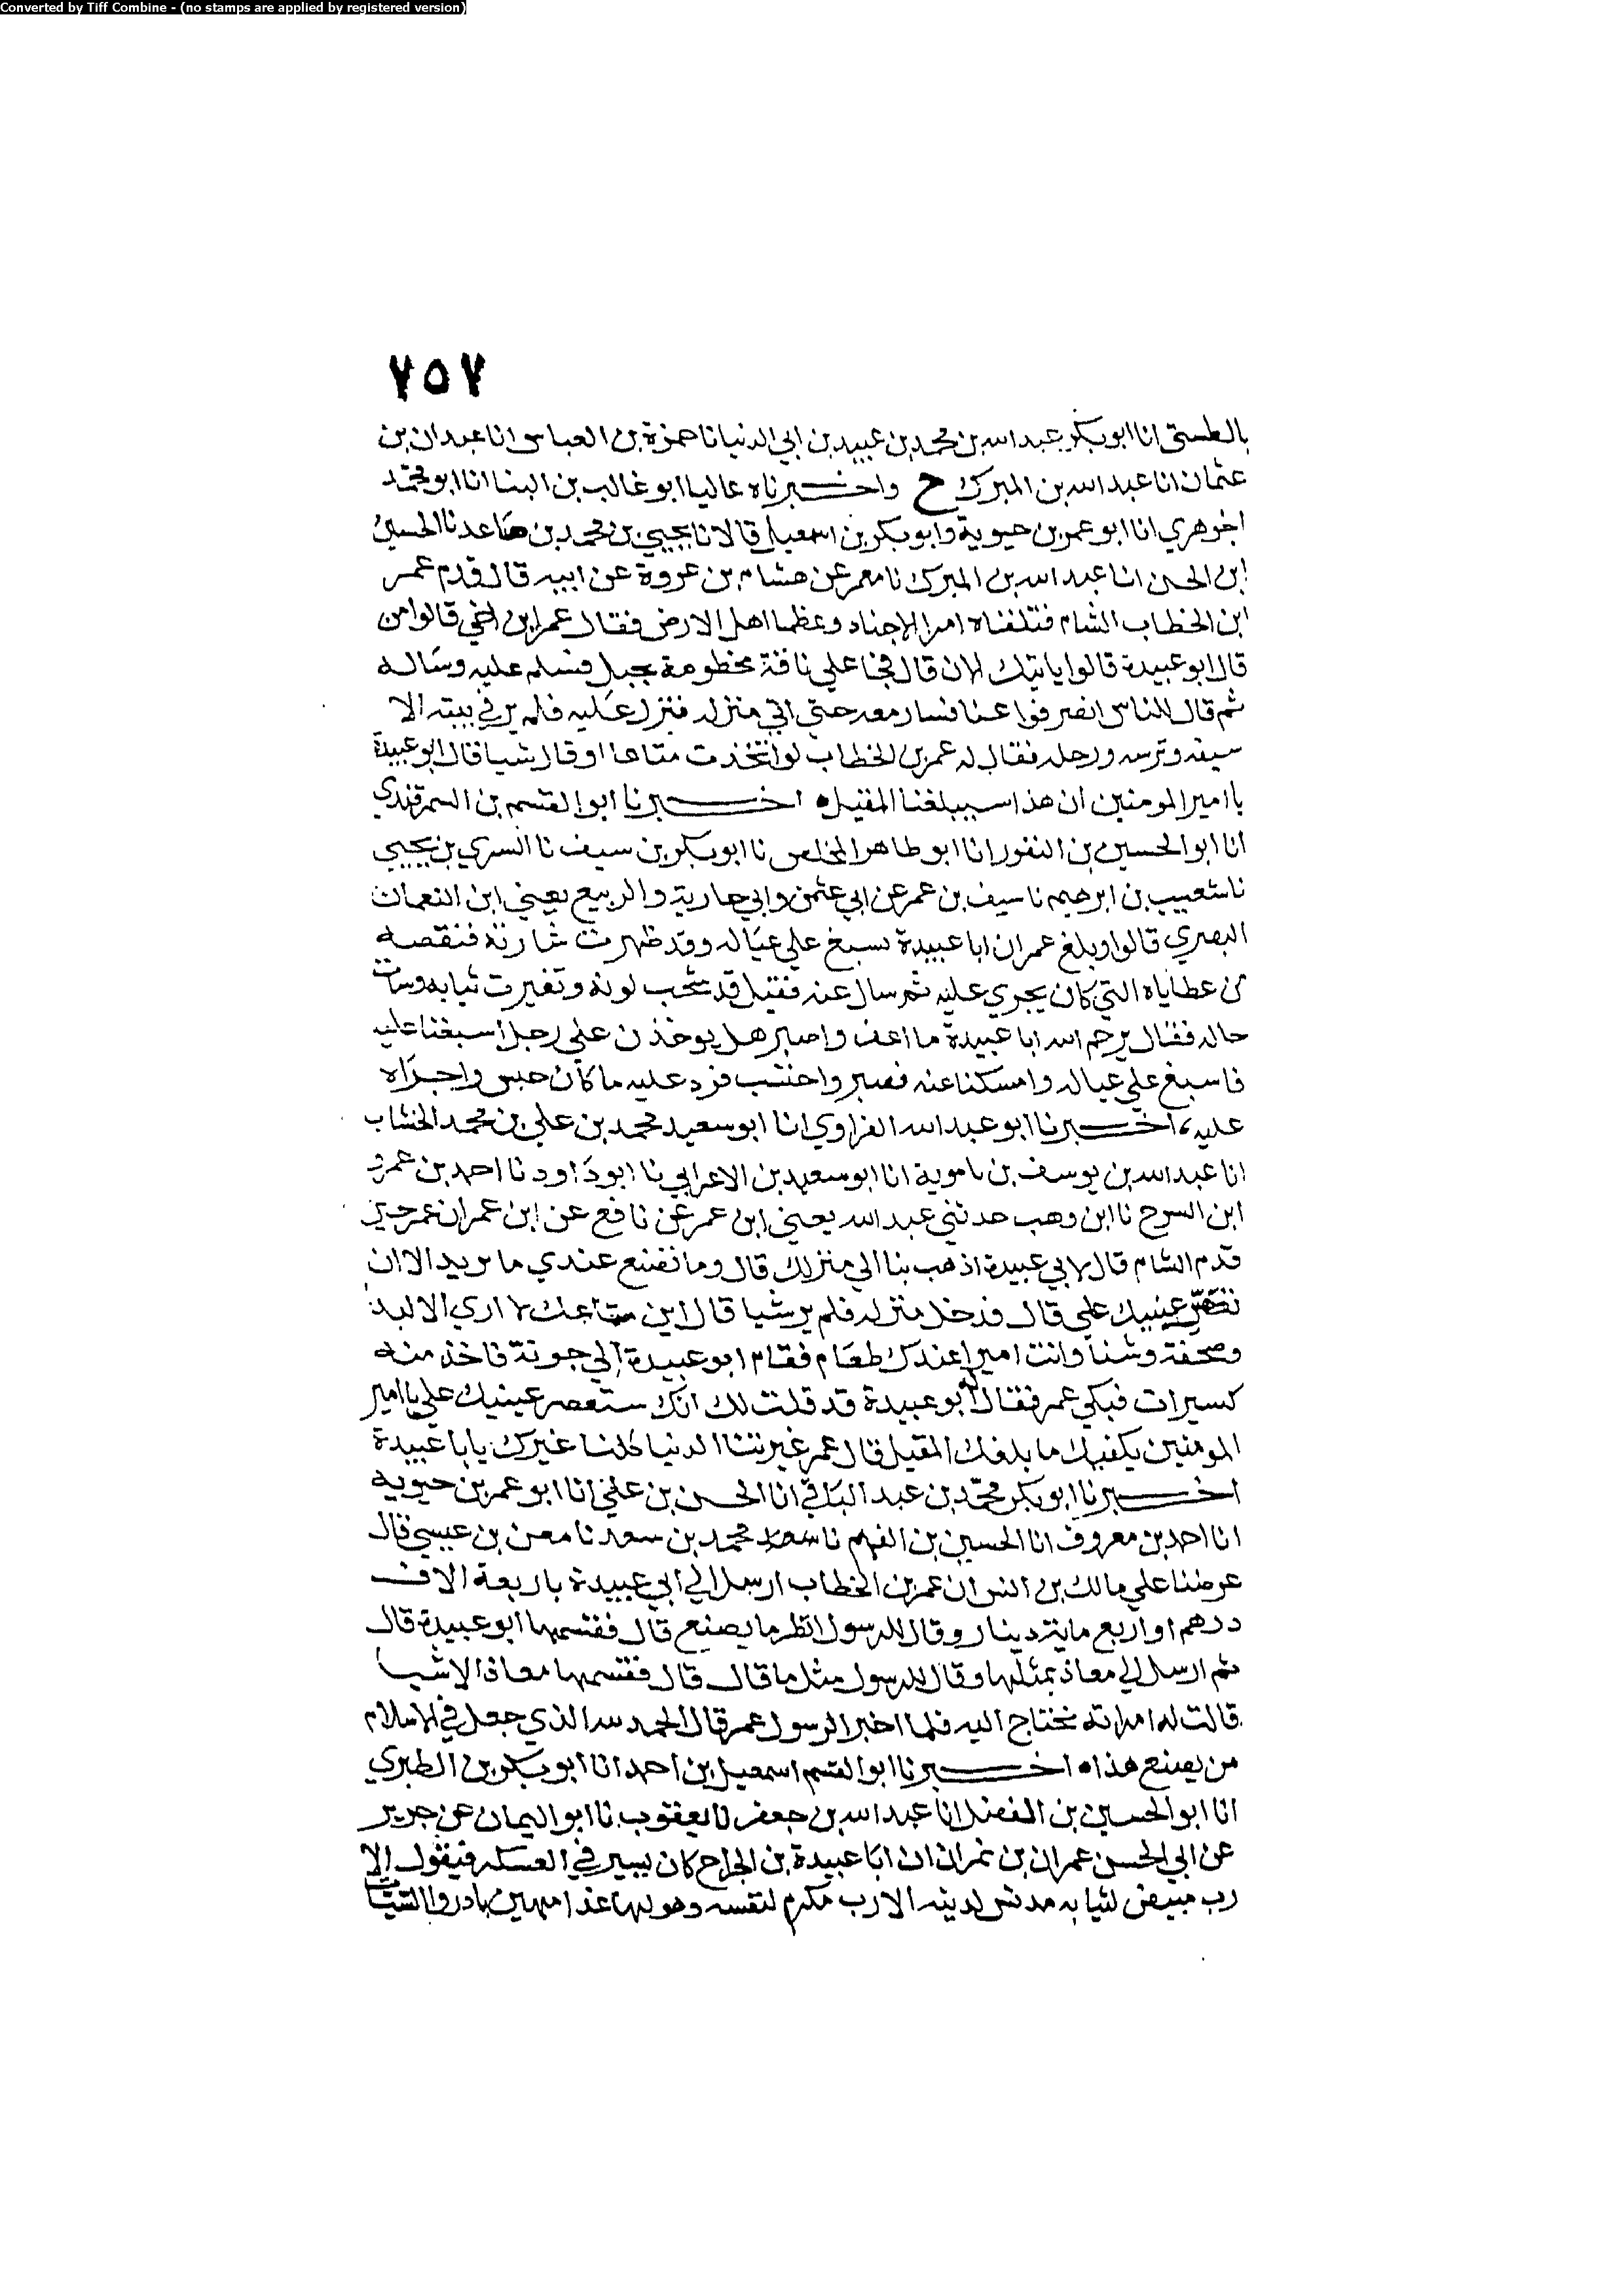 Converted by Tiff Combine - (no stamps are applied by registered version)
٧٥٧
بالطستي انا ابوبكر عبدالله بن محمد بن عبيد بن ابي الدنيا نا حمزة بن العباس انا عبدان بن
عثمان انا عبد الله بن المبرك ح واخبرناه عاليا ابو غالب بن البنا انا ابو محمد
الجوهري انا ابو عمر بن حيوية وابو بكر بن اسمعيل قالا نا يحيى بن محمد بن صاعد نا الحسين
ابن الحسن انا عبد الله بن المبرك نا معمر عن هشام بن عروة عن ابيه قال قدم عمر
ابن الخطاب الشام فتلقاه امرا الاجناد وعظما اهل الارض فقال عمر اين اخي قالوا من
قال ابو عبيدة قالوا ياتيك الان قال فجا علي ناقة مخطومة بحبل فسلم عليه وساله
ثم قال للناس انصرفوا عنا فسار معه حتى اتي منزله فنزل عليه فلم ير في بيته الا
سيفه وترسه ورحله فقال له عمر بن الخطاب لو اتخذت متاعا او قال شيا قال ابو عبيدة
يا امير المومنين ان هذا سيبلغنا المقيل ه اخبرنا ابو القسم بن السمرقندي
انا ابو الحسين بن النقور انا ابو طاهر المخلص نا ابو بكر بن سيف نا السري بن يحيي
نا شعيب بن ابرهيم نا سيف بن عمر عن ابي عثمن وابي حارية والربيع يعني ابن النعمان
البصري قالوا وبلغ عمر ان ابا عبيدة يسبغ علي عياله وقد ظهرت شارته فنقصه
من عطاياه التي كان يجري عليه ثم سال عنه فقيل قد شحب لونه وتغيرت ثيابه وسات
حاله فقال يرحم الله ابا عبيدة ما اعف واصبر هل يوخذن علي رجل اسبغنا عليه
فاسبغ علي عياله وامسكنا عنه فصبر واحتسب فرد عليه ما كان حبس واجراه
عليه، اخبرنا ابو عبد الله الفراوي انا ابو سعيد محمد بن علي بن محمد الخشاب
انا عبد الله بن يوسف بن ناموية انا ابو سعيد بن الاعرابي نا ابو داود نا احمد بن عمرو
ابن السرح نا ابن وهب حدثني عبد الله يعني ابن عمر عن نافع عن ابن عمر ان عمر حين
قدم الشام قال لابي عبيدة اذهب بنا الي منزلك قال وما تصنع عندي ما تريد الا ان
تعصر عينيك علي قال فدخل منزله فلم ير شيا قال اين متاعك لا اري الا لبدا
وصحفة وشنا وانت امير اعندك طعام فقام ابو عبيدة الي جونة فاخذ منه
كسيرات فبكي عمر فقال له ابو عبيدة قد قلت لك انك ستعصر عينيك علي يا امير
المومنين يكفيك ما بلغك المقيل قال عمر غيرتنا الدنيا كلنا غيرك يا با عبيدة
اخبرنا ابو بكر محمد بن عبد الباقي انا الحسن بن علي انا ابو عمر بن حيويه
انا احمد بن معروف انا الحسين بن الفهم نا محمد بن سعد نا معن بن عيسي قال
عرضنا علي مالك بن انس ان عمر بن الخطاب ارسل الي ابي عبيدة باربعة الاف
درهم او اربع ماية دينار وقال للرسول انظر ما يصنع قال فقسمها ابو عبيدة قال
ثم ارسل الي معاذ بمثلها وقال للرسول مثل ما قال قال فقسمها معاذ الا شيا
قالت له امراته نحتاج اليه فلما اخبر الرسول عمر قال الحمد لله الذي جعل في الاسلام
من يصنع هذا ه اخبرنا ابو القسم اسمعيل بن احمد انا ابو بكر بن الطبري
انا ابو الحسين بن الفضل انا عبد الله بن جعفر نا يعقوب نا ابو اليمان عن جرير
عن ابي الحسن عمران بن نمران ان ابا عبيدة بن الجراح كان يسير في العسكر فيقول الا
رب مبيض لثيابه مدنس لدينه الا رب مكرم لنفسه وهو لها غدا مهين بادروا السيات